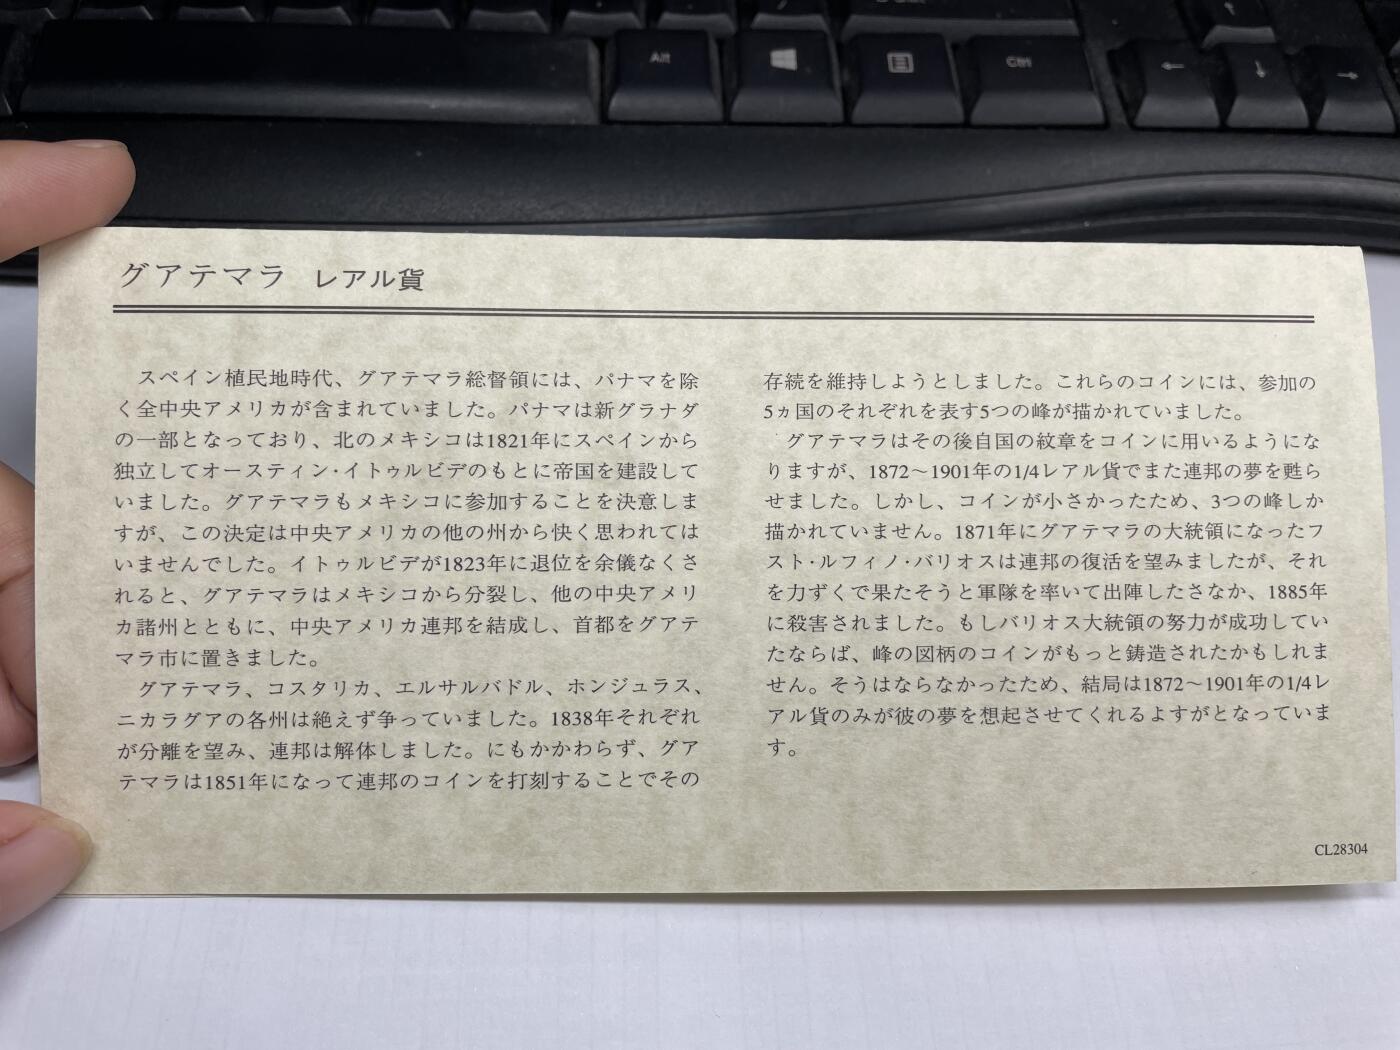 Alt
Ctrl
←
↑
↓
→
グアテマラ レアル貨
スペイン植民地時代、グアテマラ総督領には、パナマを除
く全中央アメリカが含まれていました。パナマは新グラナダ
の一部となっており、北のメキシコは1821年にスペインから
独立してオースティン・イトゥルビデのもとに帝国を建設して
いました。グアテマラもメキシコに参加することを決意しま
すが、この決定は中央アメリカの他の州から快く思われては
いませんでした。イトゥルビデが1823年に退位を余儀なくさ
れると、グアテマラはメキシコから分裂し、他の中央アメリ
カ諸州とともに、中央アメリカ連邦を結成し、首都をグアテ
マラ市に置きました。
グアテマラ、コスタリカ、エルサルバドル、ホンジュラス、
ニカラグアの各州は絶えず争っていました。1838年それぞれ
が分離を望み、連邦は解体しました。にもかかわらず、グア
テマラは1851年になって連邦のコインを打刻することでその
存続を維持しようとしました。これらのコインには、参加の
5ヵ国のそれぞれを表す5つの峰が描かれていました。
グアテマラはその後自国の紋章をコインに用いるようにな
りますが、1872～1901年の1/4レアル貨でまた連邦の夢を甦ら
せました。しかし、コインが小さかったため、3つの峰しか
描かれていません。1871年にグアテマラの大統領になったフ
スト・ルフィノ・バリオスは連邦の復活を望みましたが、それ
を力ずくで果たそうと軍隊を率いて出陣したさなか、1885年
に殺害されました。もしバリオス大統領の努力が成功してい
たならば、峰の図柄のコインがもっと鋳造されたかもしれま
せん。そうはならなかったため、結局は1872～1901年の1/4レ
アル貨のみが彼の夢を想起させてくれるよすがとなっていま
す。
CL28304